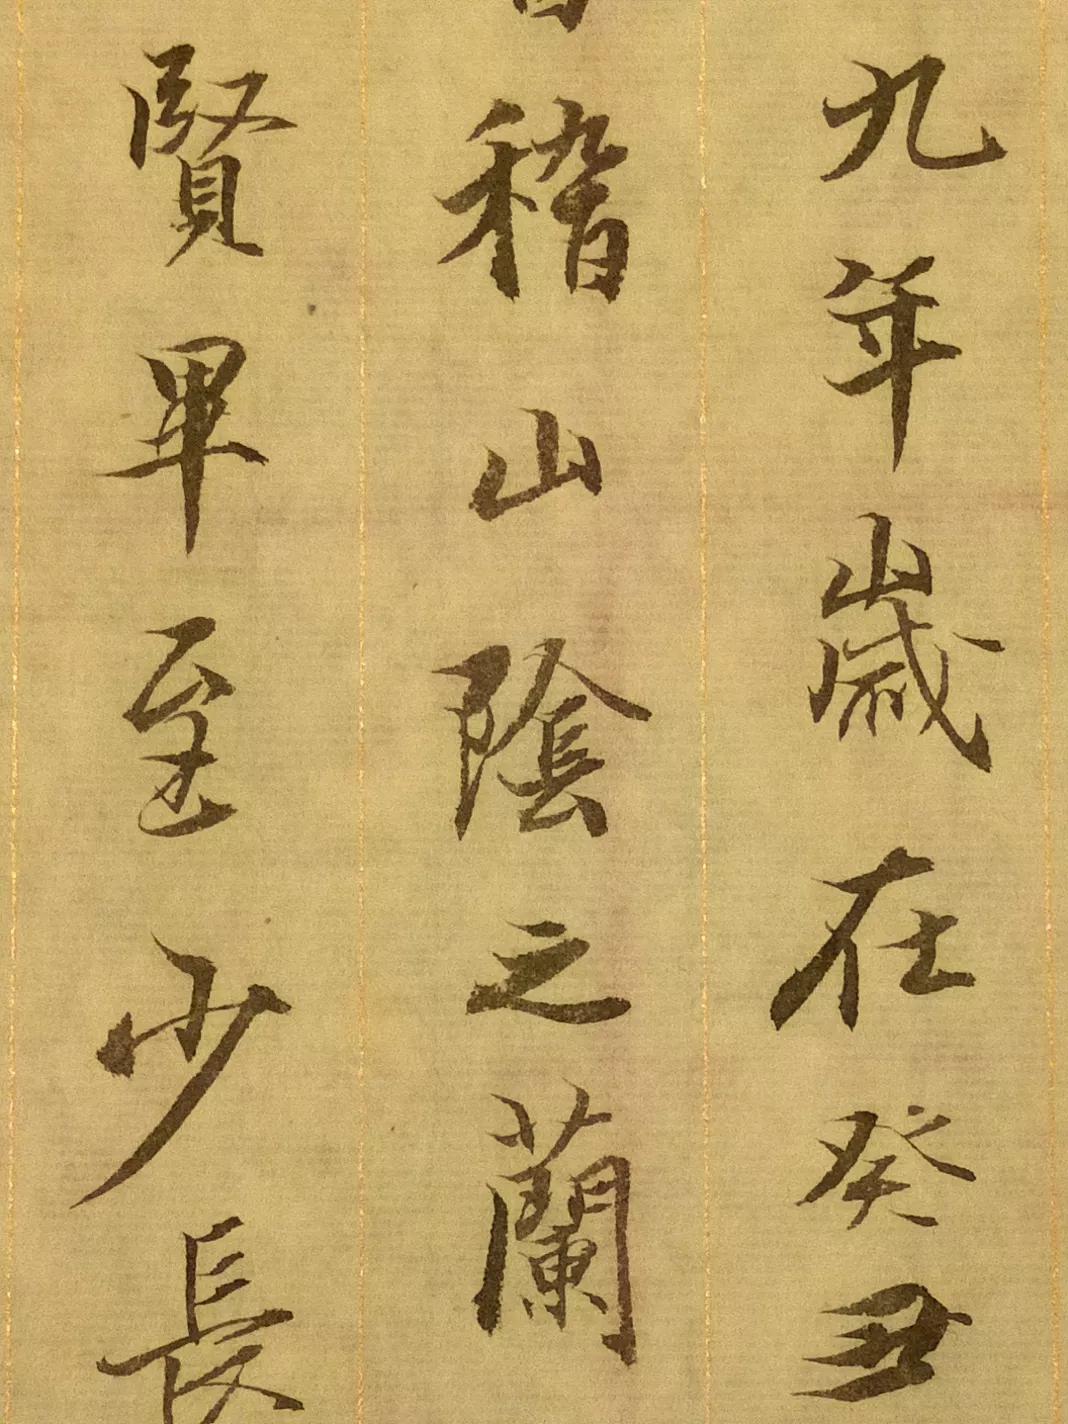 九年歲在癸丑
稽山陰之蘭
賢畢至少長